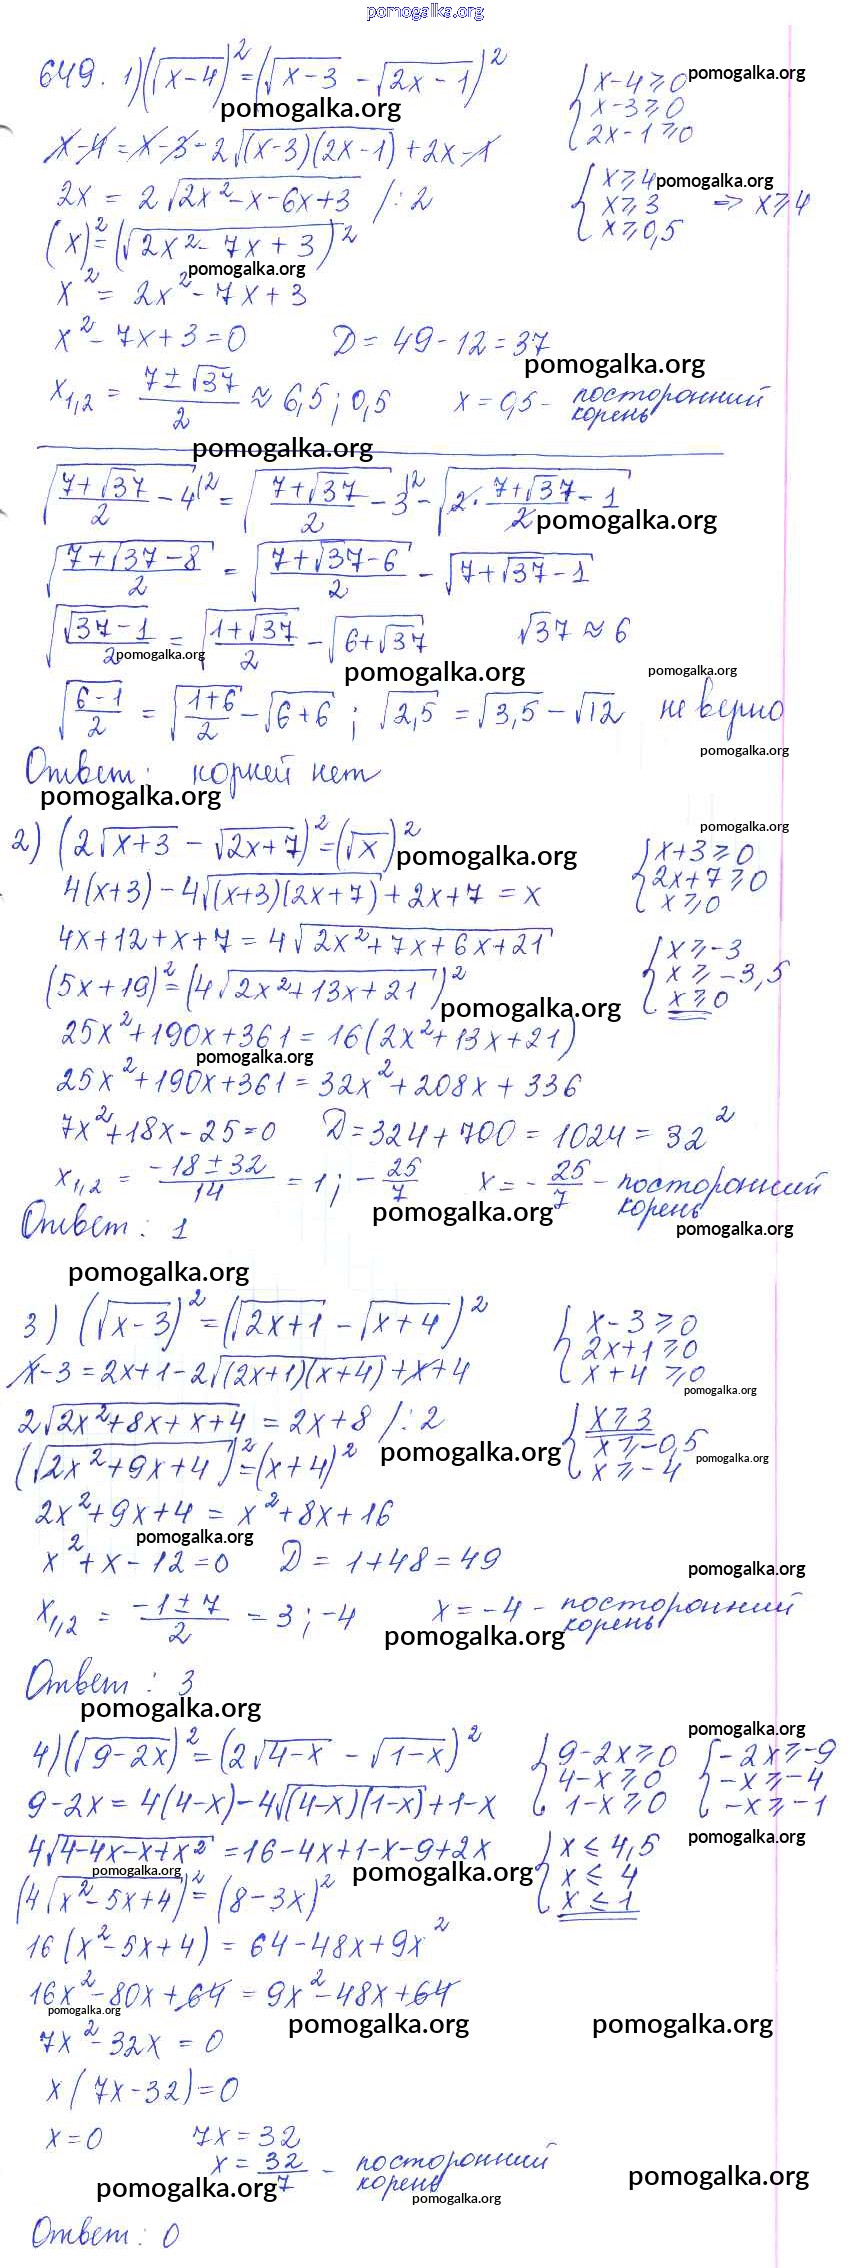 pomogalka.org
649. 1) (√(x-4))² = (√(x-3) - √(2x-1))²
{ x-4⩾0 pomogalka.org
x-3⩾0
2x-1⩾0
pomogalka.org
x-4 = x-3-2√((x-3)(2x-1)) + 2x-1
2x = 2√(2x²-x-6x+3) /:2
{ x⩾4 pomogalka.org
x⩾3 => x⩾4
x⩾0,5
(x)² = (√(2x²-7x+3))²
pomogalka.org
x² = 2x²-7x+3
x²-7x+3=0 D = 49-12=37
pomogalka.org
x₁,₂ = (7±√37)/2 ≈ 6,5; 0,5 x=0,5 - посторонний корень
pomogalka.org
√((7+√37)/2 - 4)² = √((7+√37)/2 - 3)² - √(2·(7+√37)/2 - 1)
pomogalka.org
√((7+√37-8)/2) = √((7+√37-6)/2) - √(7+√37-1)
√((√37-1)/2) = √((1+√37)/2) - √(6+√37) √37 ≈ 6
pomogalka.org
pomogalka.org pomogalka.org
√((6-1)/2) = √((1+6)/2) - √(6+6) ; √2,5 = √3,5 - √12 не верно
pomogalka.org
Ответ: корней нет
pomogalka.org
pomogalka.org
2) (2√(x+3) - √(2x+7))² = (√x)²
pomogalka.org
{ x+3⩾0
2x+7⩾0
x⩾0
4(x+3) - 4√((x+3)(2x+7)) + 2x+7 = x
4x+12+x+7 = 4√(2x²+7x+6x+21)
{ x⩾-3
x⩾-3,5
x⩾0
(5x+19)² = (4√(2x²+13x+21))²
pomogalka.org
25x²+190x+361 = 16(2x²+13x+21)
pomogalka.org
25x²+190x+361 = 32x²+208x+336
7x²+18x-25=0 D=324+700=1024=32²
x₁,₂ = (-18±32)/14 = 1; -25/7 x=-25/7 - посторонний корень
pomogalka.org
pomogalka.org
Ответ: 1
pomogalka.org
3) (√(x-3))² = (√(2x+1) - √(x+4))²
{ x-3⩾0
2x+1⩾0
x+4⩾0
pomogalka.org
x-3 = 2x+1-2√((2x+1)(x+4)) + x+4
2√(2x²+8x+x+4) = 2x+8 /:2
{ x⩾3
x⩾-0,5
x⩾-4
pomogalka.org
(√(2x²+9x+4))² = (x+4)²
pomogalka.org
2x²+9x+4 = x²+8x+16
pomogalka.org
x²+x-12=0 D = 1+48=49
pomogalka.org
x₁,₂ = (-1±7)/2 = 3; -4 x=-4 - посторонний корень
pomogalka.org
Ответ: 3
pomogalka.org
pomogalka.org
4) (√(9-2x))² = (2√(4-x) - √(1-x))²
{ 9-2x⩾0 { -2x⩾-9
4-x⩾0 -x⩾-4
1-x⩾0 -x⩾-1
9-2x = 4(4-x)-4√((4-x)(1-x)) + 1-x
pomogalka.org
4√(4-4x-x+x²) = 16-4x+1-x-9+2x
{ x⩽4,5
x⩽4
x⩽1
pomogalka.org
pomogalka.org
(4√(x²-5x+4))² = (8-3x)²
16(x²-5x+4) = 64-48x+9x²
16x²-80x+64 = 9x²-48x+64
pomogalka.org
pomogalka.org pomogalka.org
7x²-32x = 0
x(7x-32)=0
x=0 7x=32
x=32/7 - посторонний корень
pomogalka.org
pomogalka.org
pomogalka.org
Ответ: 0